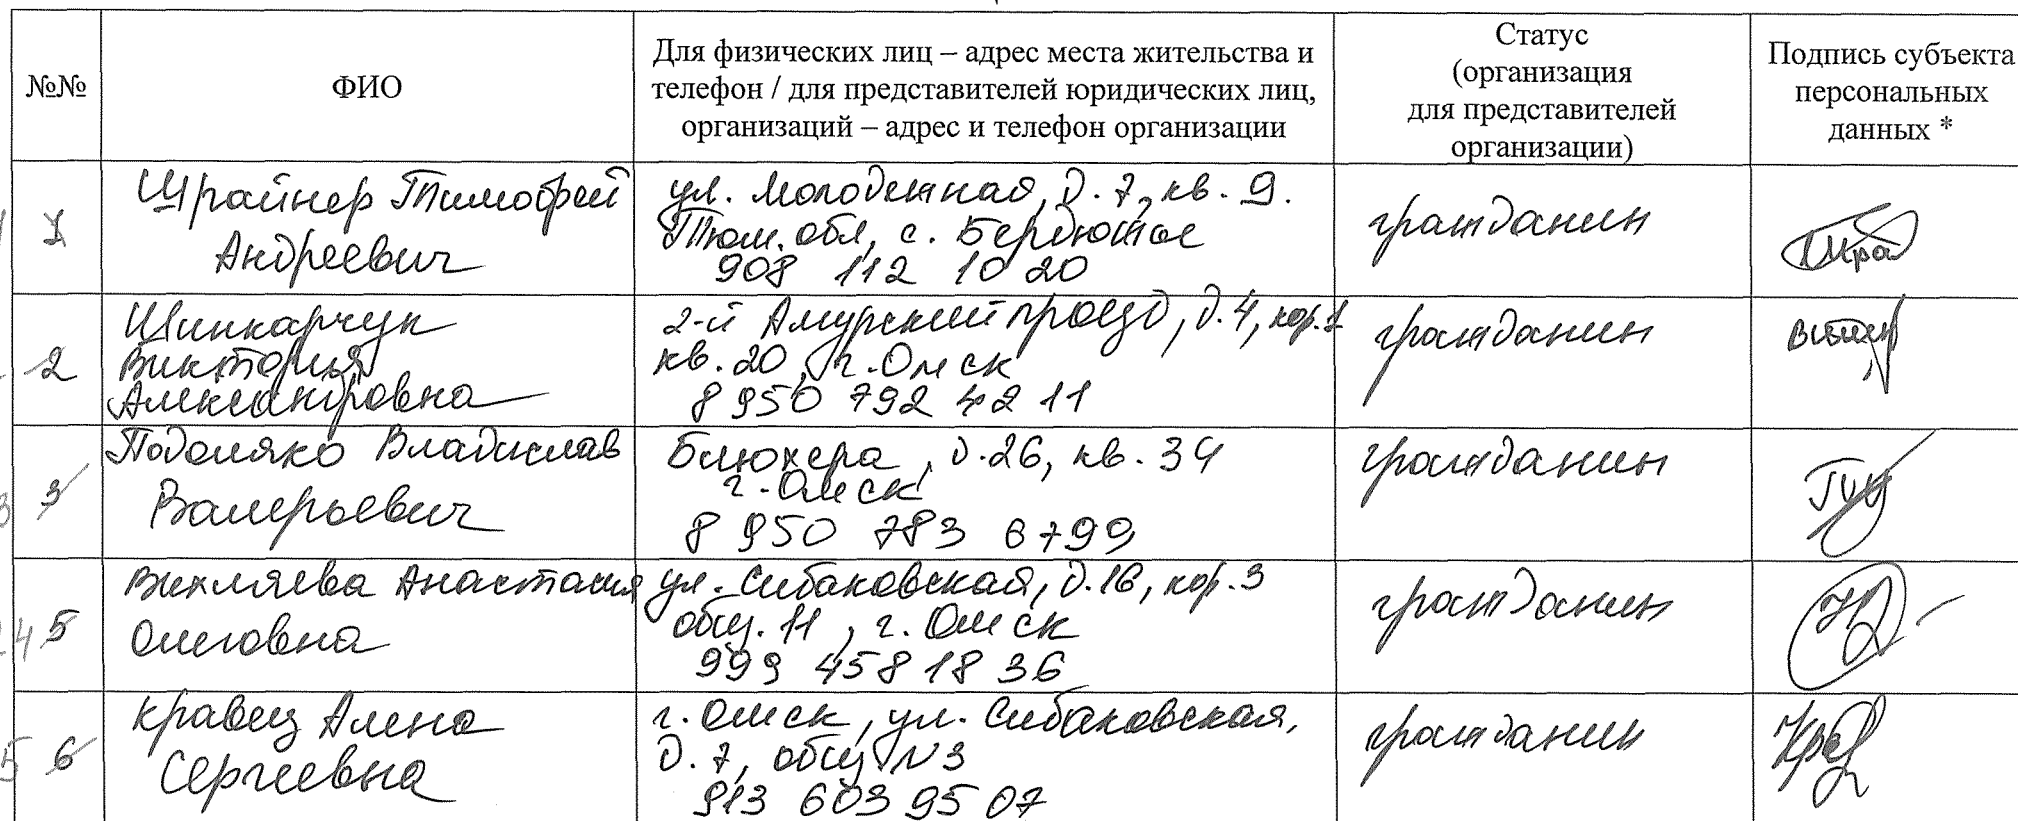 №№
ФИО
Для физических лиц – адрес места жительства и
телефон / для представителей юридических лиц,
организаций – адрес и телефон организации
Статус
(организация
для представителей
организации)
Подпись субъекта
персональных
данных *
1 1
Шрайнер Тимофей
Андреевич
ул. Молодежная, д. 7, кв. 9.
Тюм. обл, с. Бердюжье
908 112 10 20
гражданин
2
Шинкарчук
Виктория
Александровна
2-й Амурский проезд, д. 4, кор. 1
кв. 20, г. Омск
8 950 792 42 11
гражданин
3 3
Подоляко Владислав
Валерьевич
Блюхера, д. 26, кв. 34
г. Омск
8 950 783 6799
гражданин
4 5
Вихляева Анастасия
Олеговна
ул. Сибаковская, д. 16, кор. 3
общ. 11, г. Омск
999 458 18 36
гражданин
5 6
Кравец Алена
Сергеевна
г. Омск, ул. Сибаковская,
д. 7, общ N3
913 603 95 07
гражданин